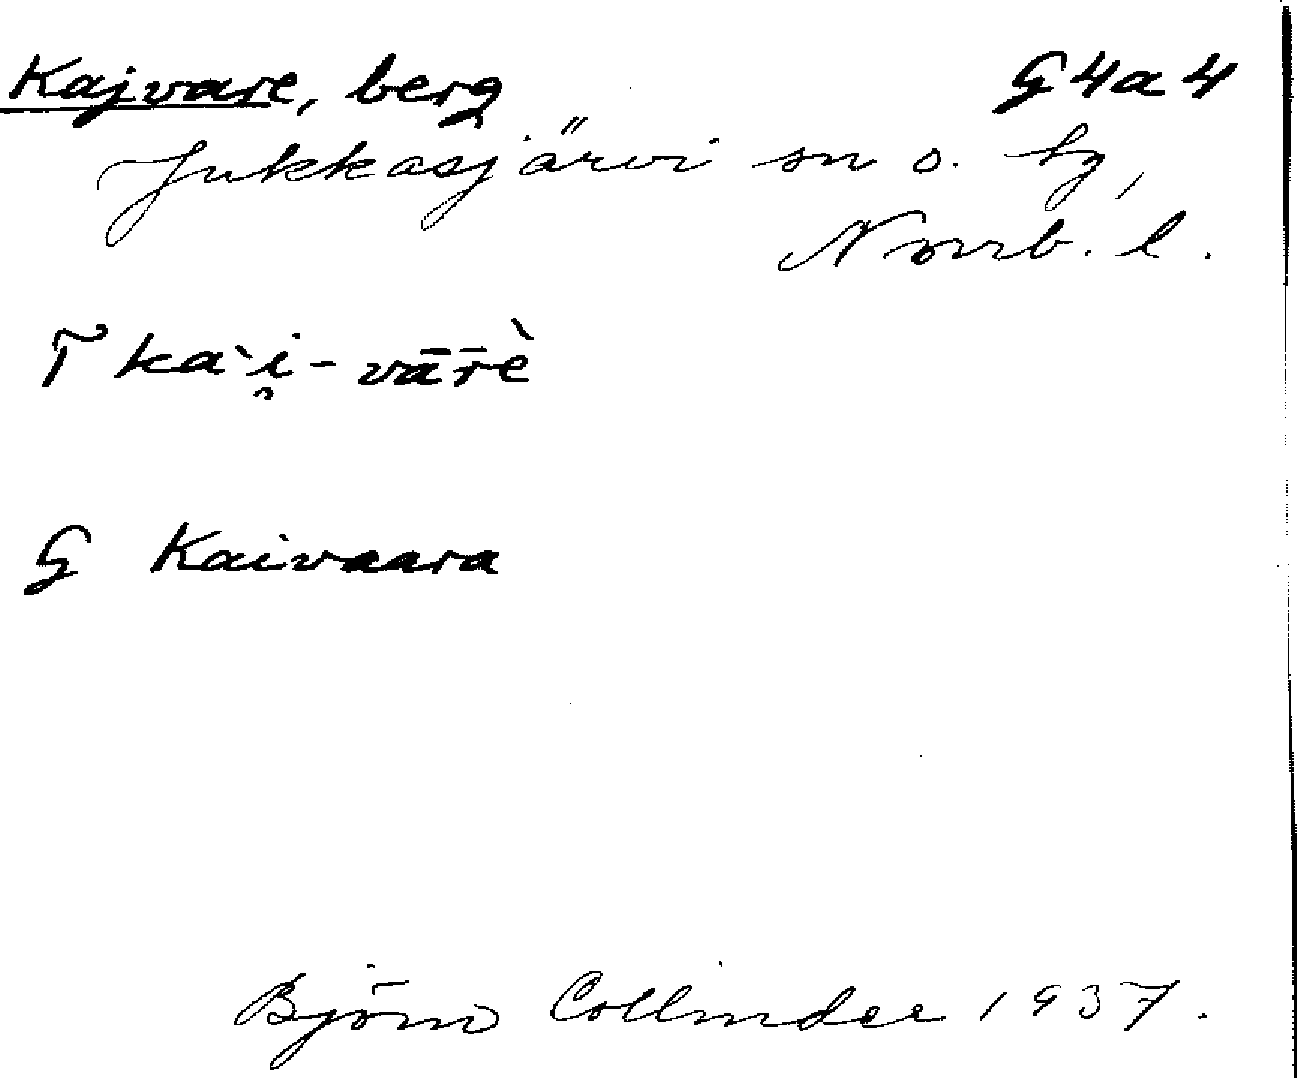 Kajvare, berg G4a4
Jukkasjärvi sn o. tg,
Norrb. l.
T kaˋi̯-vār̄ὲ
G Kaivaara
Björn Collinder 1937.